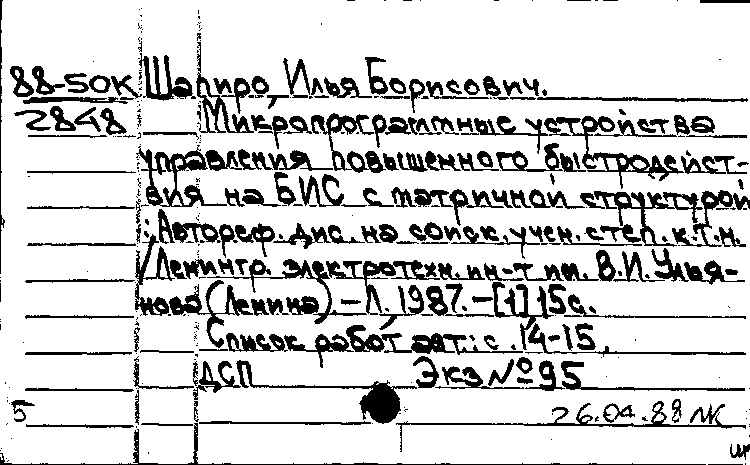 88-50К Шапиро, Илья Борисович.
2848 Микропрограммные устройства
управления повышенного быстродейст-
вия на БИС с матричной структурой
: Автореф. дис. на соиск. учен. степ. к.т.н.
/Ленингр. электротехн. ин-т им. В.И. Улья-
нова (Ленина). - Л., 1987. - [1] 15с.
Список работ авт.: с. 14-15.
ДСП Экз № 95
5 26.04.88